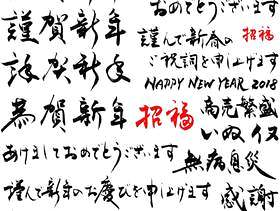 謹賀新年
謹賀新年
恭賀新年
あけましておめでとうございます
謹んで新年のお慶びを申し上げます
おめでとうございます
謹んで新春の
ご祝詞を申し上げます
招福
HAPPY NEW YEAR 2018
招福
商売繁盛
いぬ イヌ
無病息災
感謝